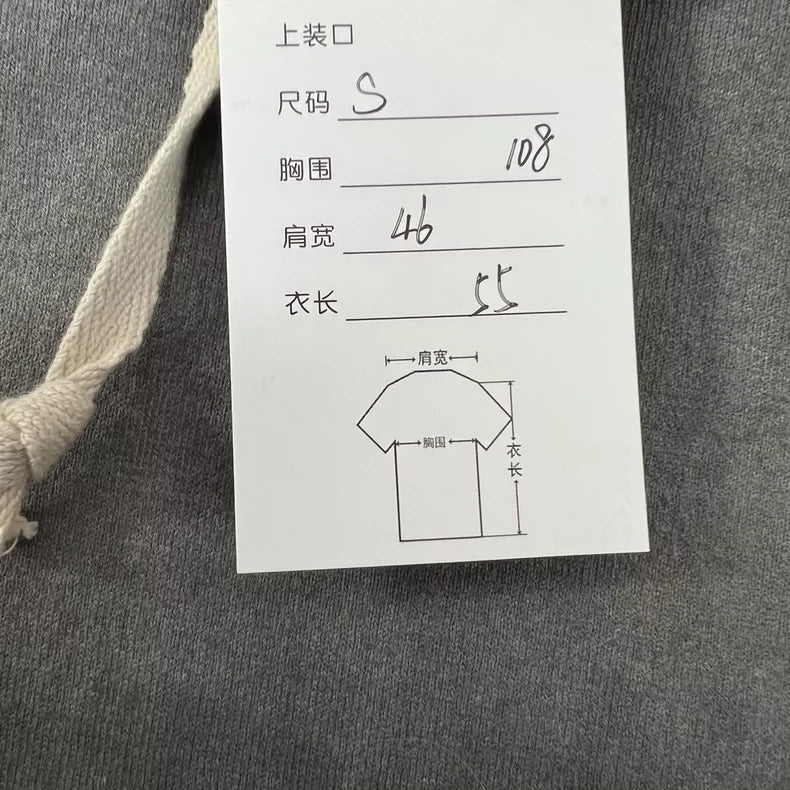 上装口
尺码 S
胸围 108
肩宽 46
衣长 55
肩宽
胸围
衣长